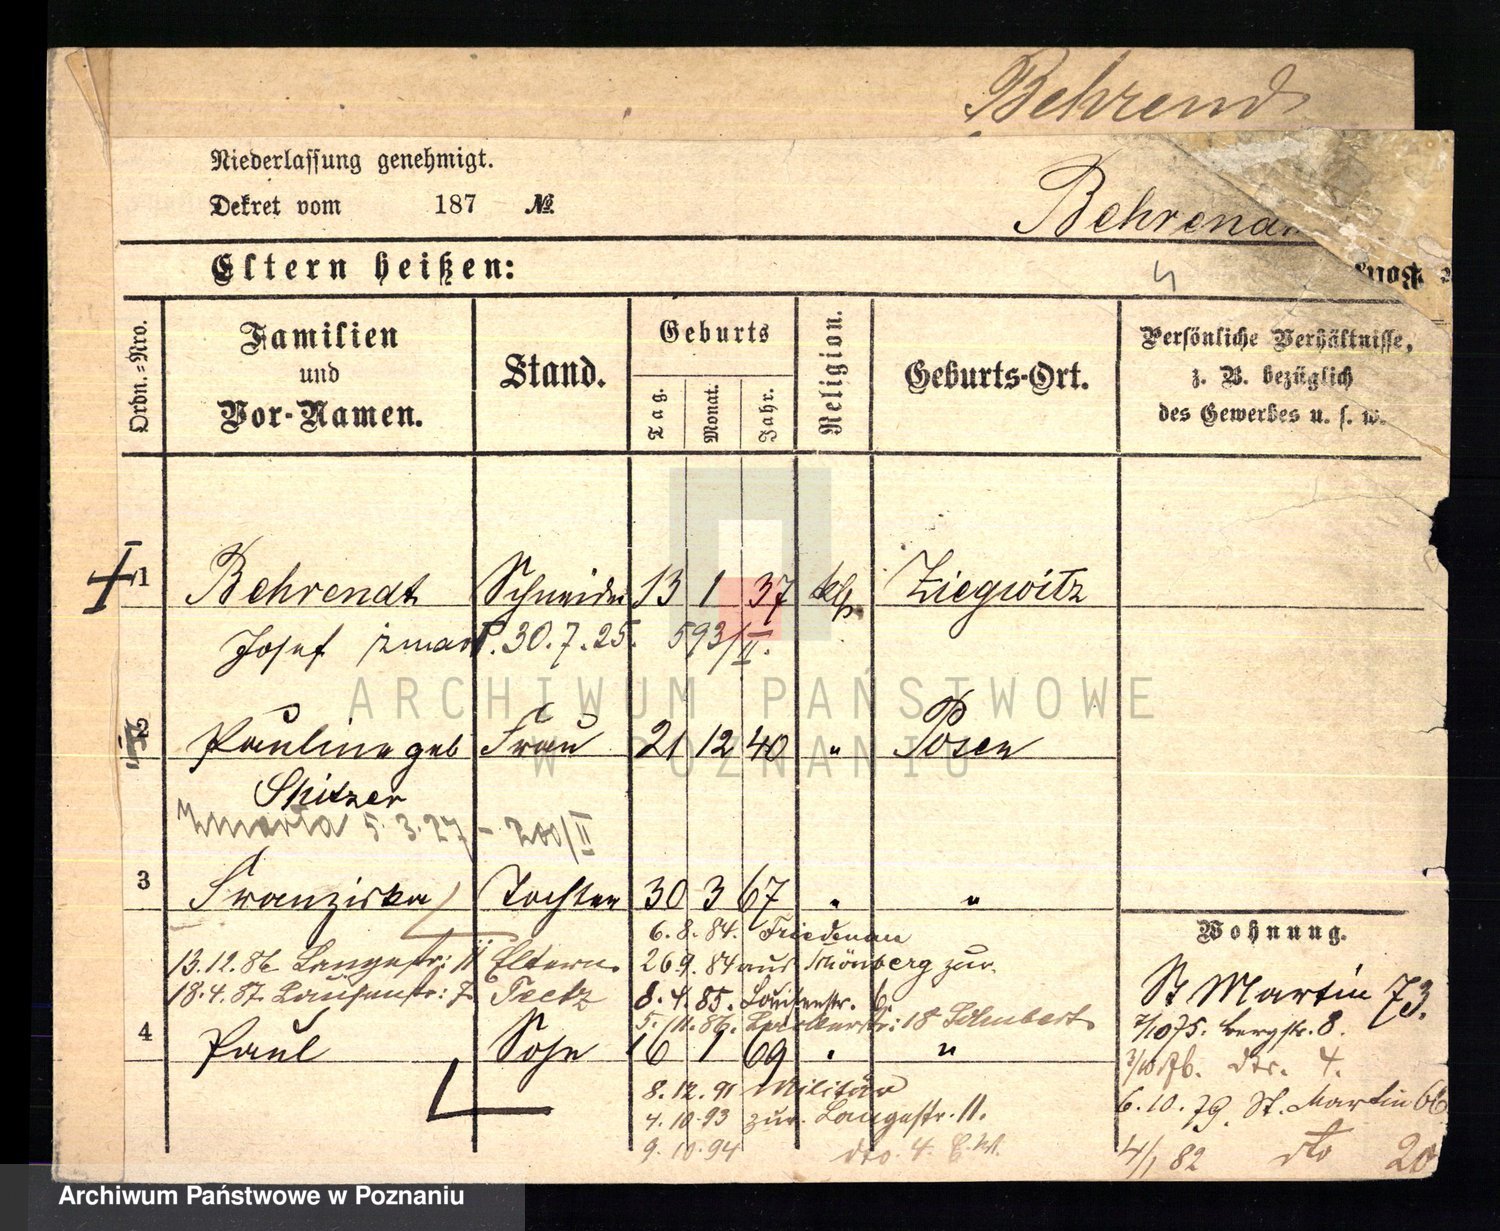 Behrend
Niederlassung genehmigt.
Dekret vom 187 №
Behrendt
Eltern heißen:
4
Ordn.-Nro.
Familien
und
Vor-Namen.
Stand.
Geburts
Tag.
Monat.
Jahr.
Religion.
Geburts-Ort.
Persönliche Verhältnisse,
z. B. bezüglich
des Gewerbes u. s. w.
1 Behrendt Schneider 13 1 37 kth Ziegwitz
Josef zmarł. 30.7.25. 593/II.
2 Pauline geb Frau 21 12 40 " Posen
Spitzer
zmarła 5.3.27 - 200/II
3 Franziska Tochter 30 3 67 " "
6.8.84. Friedenau
13.12.86 Langestr: 11 Eltern. 26 9. 84 aus Schönberg zur.
18.4.87. Louisenstr: 7. 8.4.85. Louisenstr. 6
5./11.86. 18 Schubert
4 Paul Sohn 16 1 69 " "
8.12.91 Militär
4.10.93 zur. Langestr. 11.
9.10.94 dto. 4.
Wohnung.
St Martin 73.
7/10 75. Bergstr. 8.
dto. 4.
6.10.79. St. Martin 66
4/1 82 dto 20
ARCHIWUM PAŃSTWOWE
W POZNANIU
Archiwum Państwowe w Poznaniu